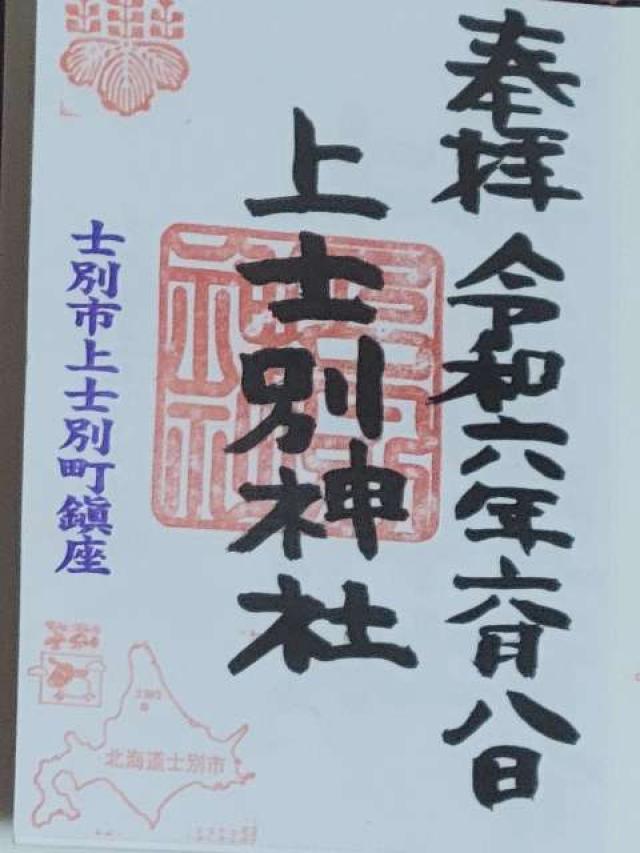 奉拝 令和六年六月八日
上士別神社
士別市上士別町鎮座
北海道士別市